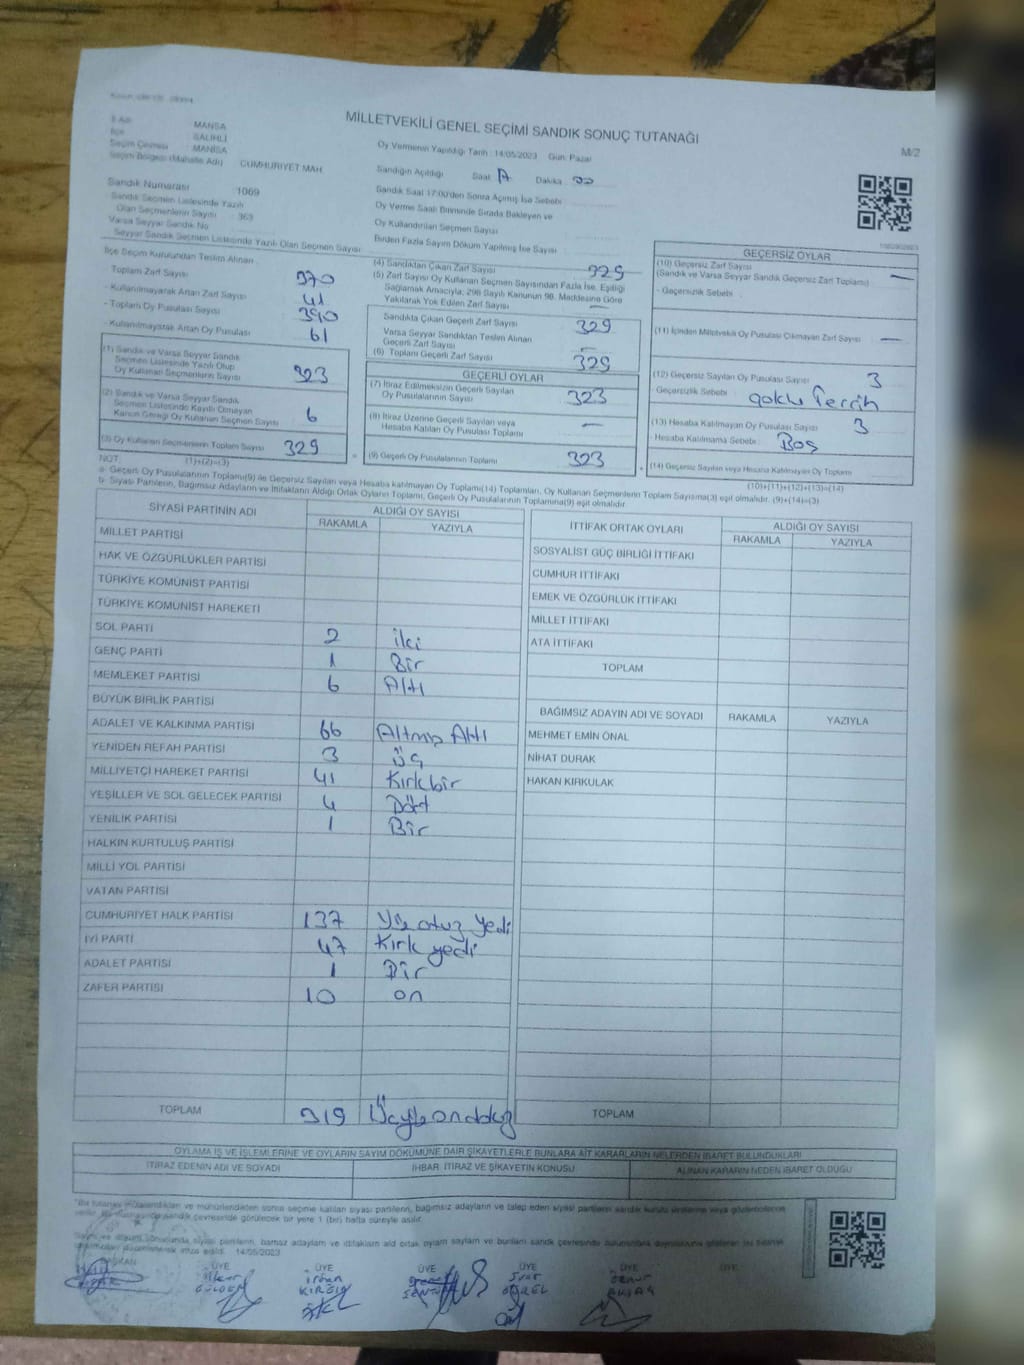 MİLLETVEKİLİ GENEL SEÇİMİ SANDIK SONUÇ TUTANAĞI
M/2
İl Adı : MANİSA
İlçe : SALİHLİ
Seçim Çevresi : MANİSA
Seçim Bölgesi (Mahalle Adı) CUMHURİYET MAH.
Sandık Numarası : 1069
Sandık Seçmen Listesinde Yazılı
Olan Seçmenlerin Sayısı : 363
Varsa Seyyar Sandık No
Seyyar Sandık Seçmen Listesinde Yazılı Olan Seçmen Sayısı
Oy Vermenin Yapıldığı Tarih : 14/05/2023 Gün: Pazar
Sandığın Açıldığı Saat Dakika 00
Sandık Saat 17:00'den Sonra Açılmış İse Sebebi
Oy Verme Saati Bitiminde Sırada Bekleyen ve
Oy Kullandırılan Seçmen Sayısı
Birden Fazla Sayım Döküm Yapılmış İse Sayısı
İlçe Seçim Kurulundan Teslim Alınan
Toplam Zarf Sayısı 370
- Kullanılmayarak Artan Zarf Sayısı 41
- Toplam Oy Pusulası Sayısı 390
- Kullanılmayarak Artan Oy Pusulası 61
(1) Sandık ve Varsa Seyyar Sandık
Seçmen Listesinde Yazılı Olup
Oy Kullanan Seçmenlerin Sayısı 323
(2) Sandık ve Varsa Seyyar Sandık
Seçmen Listesinde Kayıtlı Olmayan
Kanun Gereği Oy Kullanan Seçmen Sayısı 6
(3) Oy Kullanan Seçmenlerin Toplam Sayısı 329
(1)+(2)=(3)
(4) Sandıktan Çıkan Zarf Sayısı 329
(5) Zarf Sayısı Oy Kullanan Seçmen Sayısından Fazla İse, Eşitliği
Sağlamak Amacıyla, 298 Sayılı Kanunun 98. Maddesine Göre
Yakılarak Yok Edilen Zarf Sayısı —
Sandıkta Çıkan Geçerli Zarf Sayısı 329
Varsa Seyyar Sandıktan Teslim Alınan
Geçerli Zarf Sayısı —
(6) Toplam Geçerli Zarf Sayısı 329
GEÇERLİ OYLAR
(7) İtiraz Edilmeksizin Geçerli Sayılan
Oy Pusulalarının Sayısı 323
(8) İtiraz Üzerine Geçerli Sayılan veya
Hesaba Katılan Oy Pusulası Toplamı —
(9) Geçerli Oy Pusulalarının Toplamı 323
GEÇERSİZ OYLAR
(10) Geçersiz Zarf Sayısı
(Sandık ve Varsa Seyyar Sandık Geçersiz Zarf Toplamı) —
- Geçersizlik Sebebi :
(11) İçinden Milletvekili Oy Pusulası Çıkmayan Zarf Sayısı —
(12) Geçersiz Sayılan Oy Pusulası Sayısı 3
Geçersizlik Sebebi : Çoklu Tercih
(13) Hesaba Katılmayan Oy Pusulası Sayısı 3
- Hesaba Katılmama Sebebi : Boş
(14) Geçersiz Sayılan veya Hesaba Katılmayan Oy Toplamı
(10)+(11)+(12)+(13)=(14)
NOT:
a- Geçerli Oy Pusulalarının Toplamı(9) ile Geçersiz Sayılan veya Hesaba Katılmayan Oy Toplamı(14) Toplamları, Oy Kullanan Seçmenlerin Toplam Sayısına(3) eşit olmalıdır. (9)+(14)=(3)
b- Siyasi Partilerin, Bağımsız Adayların ve İttifakların Aldığı Ortak Oyların Toplamı, Geçerli Oy Pusulalarının Toplamına(9) eşit olmalıdır.
SİYASİ PARTİNİN ADI ALDIĞI OY SAYISI
RAKAMLA YAZIYLA
MİLLET PARTİSİ
HAK VE ÖZGÜRLÜKLER PARTİSİ
TÜRKİYE KOMÜNİST PARTİSİ
TÜRKİYE KOMÜNİST HAREKETİ
SOL PARTİ 2 iki
GENÇ PARTİ 1 Bir
MEMLEKET PARTİSİ 6 Altı
BÜYÜK BİRLİK PARTİSİ
ADALET VE KALKINMA PARTİSİ 66 Altmış Altı
YENİDEN REFAH PARTİSİ 3 Üç
MİLLİYETÇİ HAREKET PARTİSİ 41 Kırkbir
YEŞİLLER VE SOL GELECEK PARTİSİ 4 Dört
YENİLİK PARTİSİ 1 Bir
HALKIN KURTULUŞ PARTİSİ
MİLLİ YOL PARTİSİ
VATAN PARTİSİ
CUMHURİYET HALK PARTİSİ 137 Yüz otuz yedi
İYİ PARTİ 47 Kırk yedi
ADALET PARTİSİ 1 Bir
ZAFER PARTİSİ 10 on
TOPLAM 319 Üçyüzondokuz
İTTİFAK ORTAK OYLARI ALDIĞI OY SAYISI
RAKAMLA YAZIYLA
SOSYALİST GÜÇ BİRLİĞİ İTTİFAKI
CUMHUR İTTİFAKI
EMEK VE ÖZGÜRLÜK İTTİFAKI
MİLLET İTTİFAKI
ATA İTTİFAKI
TOPLAM
BAĞIMSIZ ADAYIN ADI VE SOYADI RAKAMLA YAZIYLA
MEHMET EMİN ÖNAL
NİHAT DURAK
HAKAN KIRKULAK
TOPLAM
OYLAMA İŞ VE İŞLEMLERİNE VE OYLARIN SAYIM DÖKÜMÜNE DAİR ŞİKAYETLERLE BUNLARA AİT KARARLARIN NELERDEN İBARET BULUNDUKLARI
İTİRAZ EDENİN ADI VE SOYADI İHBAR, İTİRAZ VE ŞİKAYETİN KONUSU ALINAN KARARIN NEDEN İBARET OLDUĞU
14/05/2023
BAŞKAN ÜYE ÜYE ÜYE ÜYE ÜYE ÜYE